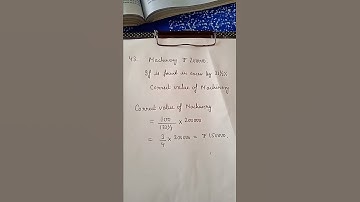 43. Machinery ₹ 20000
If is found in excess by 33⅓%
Correct value of Machinery
Correct value of Machinery
= 100 / 133⅓ × 200000
= 3/4 × 200000 = ₹ 1,50,000.